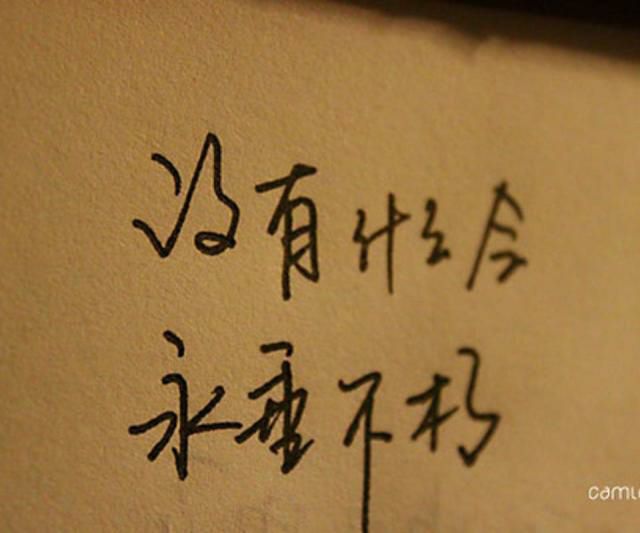 没有什么会
永垂不朽
camlo